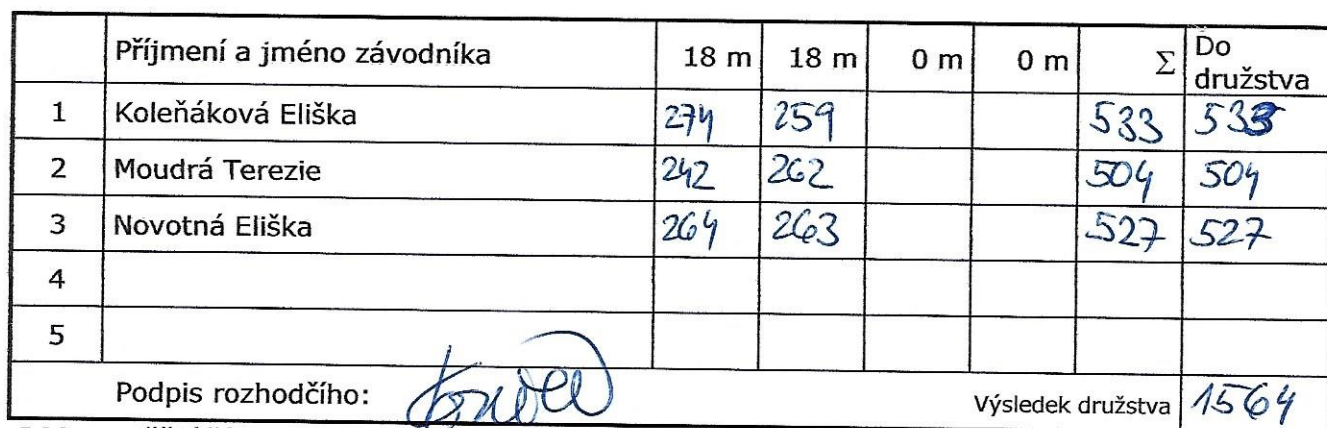 Příjmení a jméno závodníka 18 m 18 m 0 m 0 m Σ Do družstva
1 Koleňáková Eliška 274 259 533 533
2 Moudrá Terezie 242 262 504 504
3 Novotná Eliška 264 263 527 527
4
5
Podpis rozhodčího: Výsledek družstva 1564